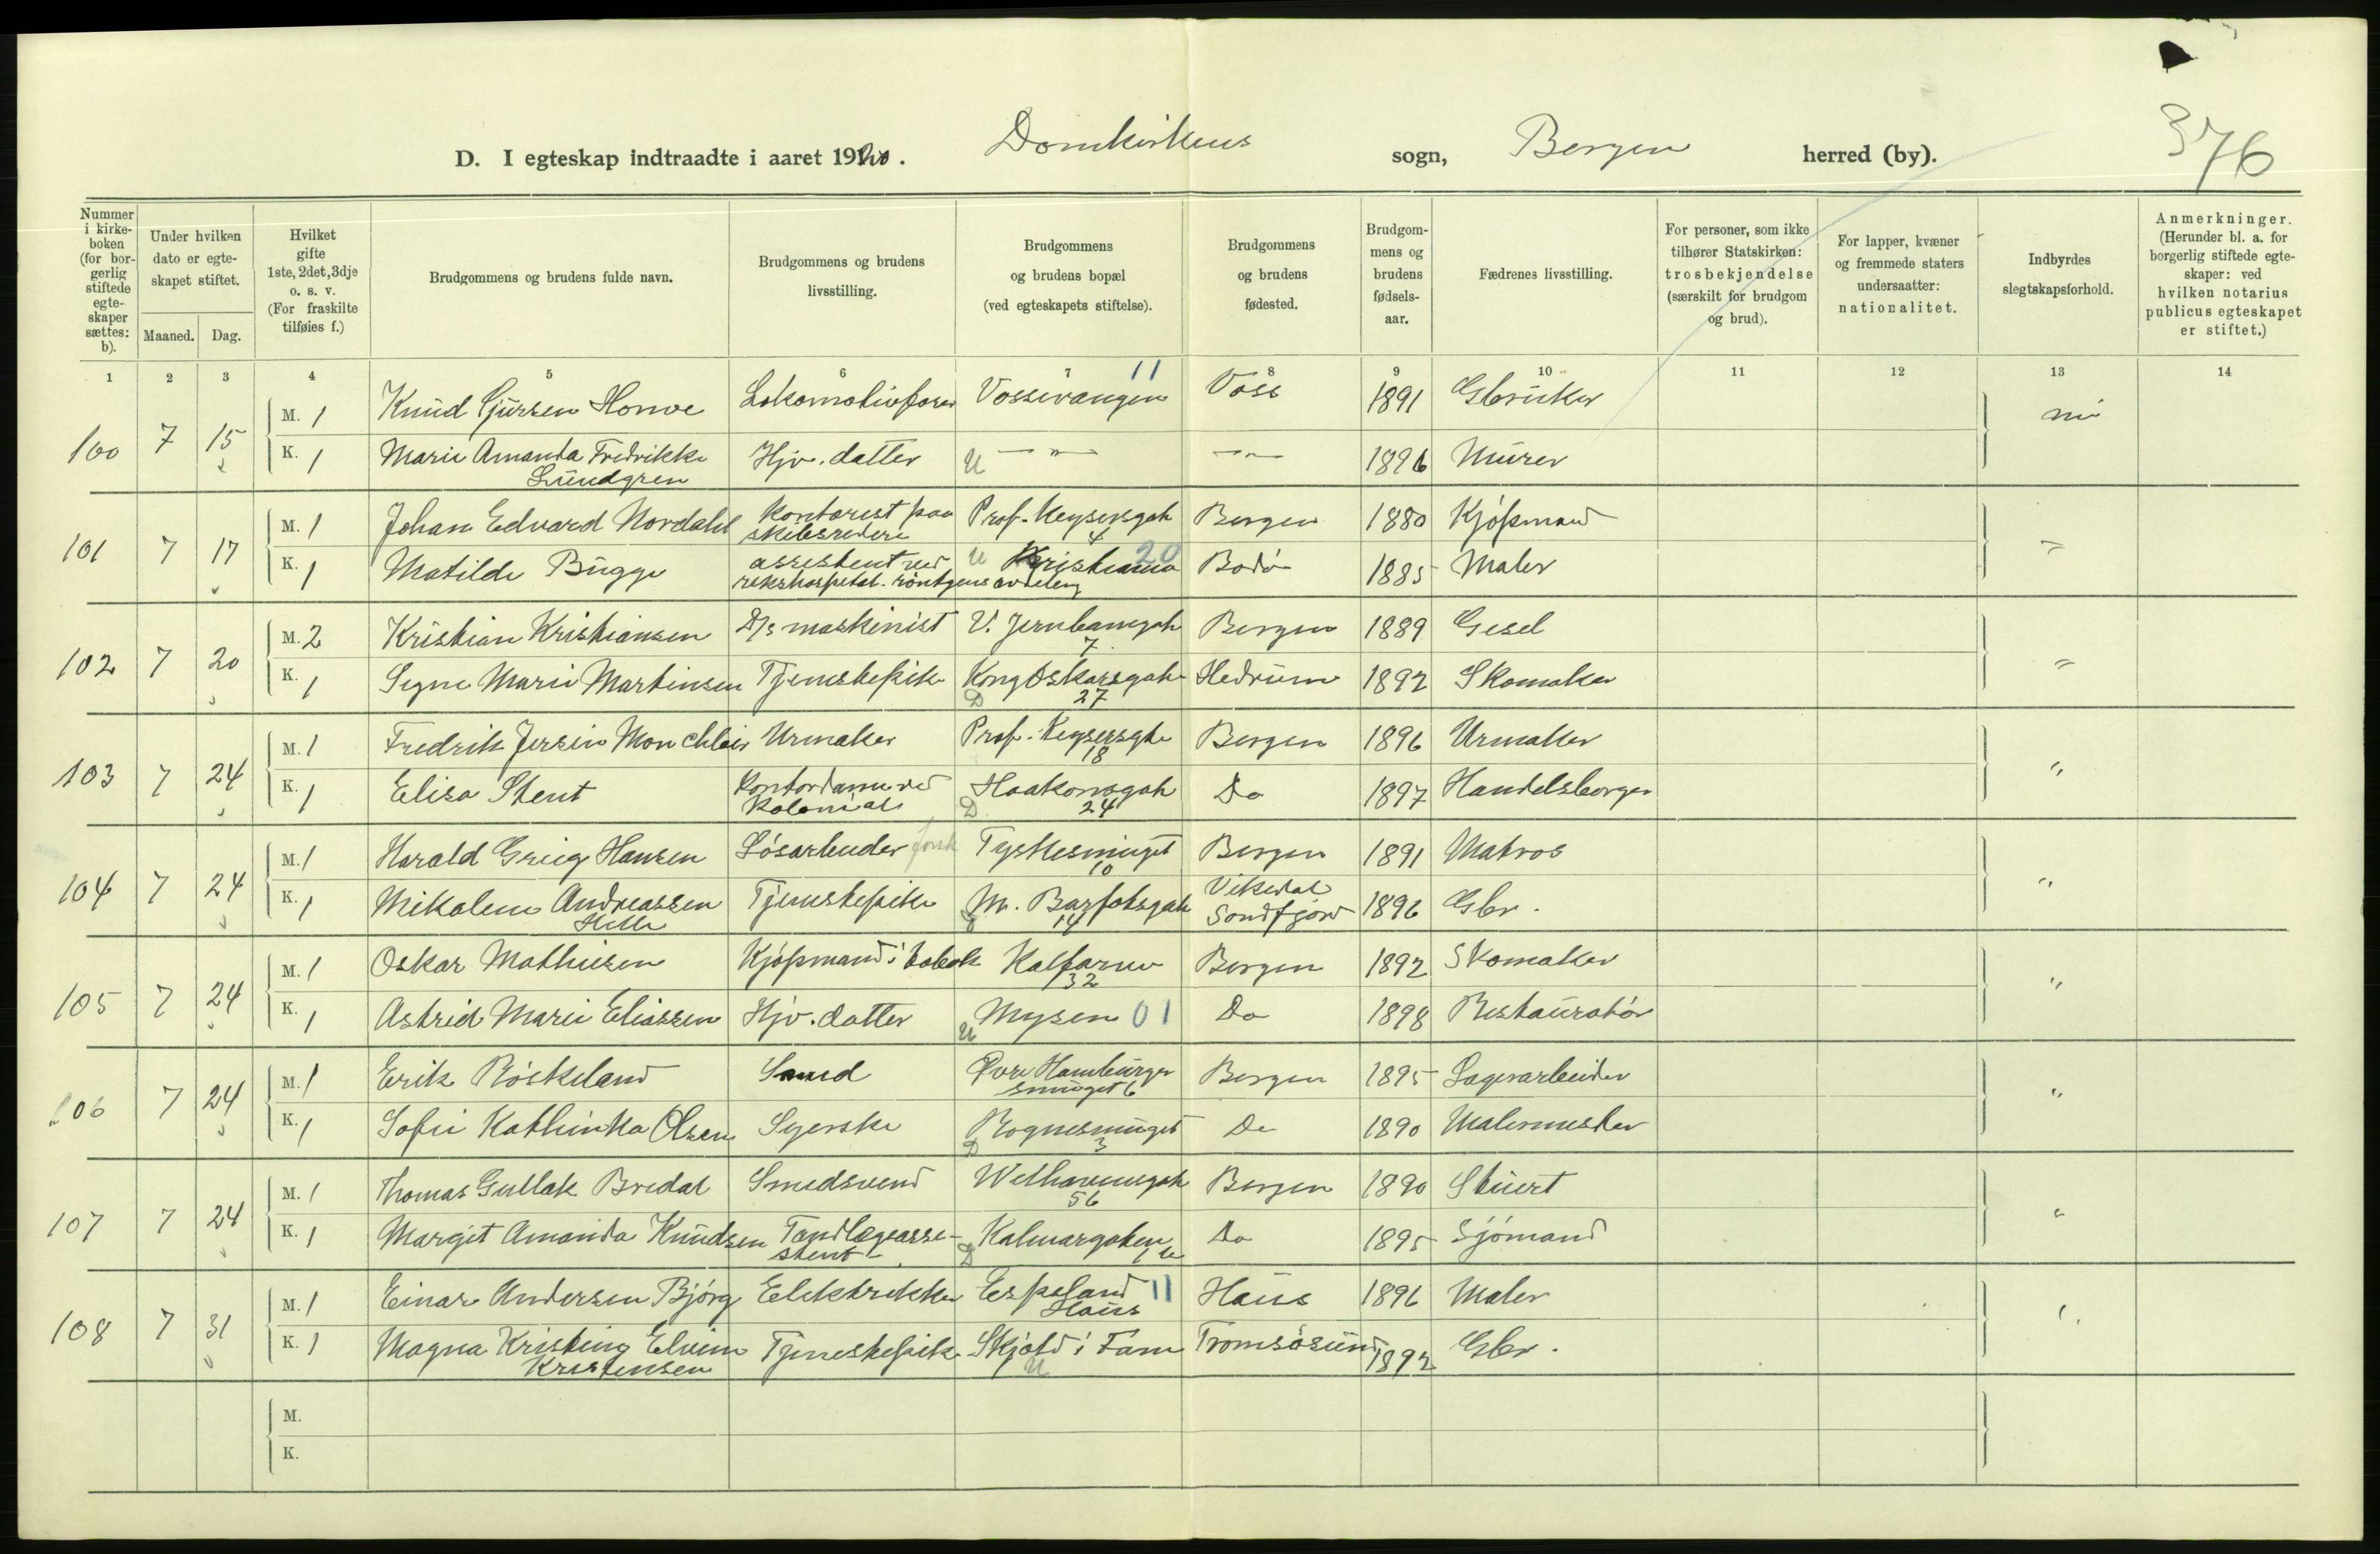 376
D. I egteskap indtraadte i aaret 1920. Domkirkens sogn, Bergen herred (by).
Nummer i kirkeboken (for borgerlig stiftede egteskaper sættes: b).
Under hvilken dato er egteskapet stiftet.
Maaned. Dag.
Hvilket gifte 1ste, 2det, 3dje o. s. v. (For fraskilte tilføies f.)
Brudgommens og brudens fulde navn.
Brudgommens og brudens livsstilling.
Brudgommens og brudens bopæl (ved egteskapets stiftelse).
Brudgommens og brudens fødested.
Brudgommens og brudens fødselsaar.
Fædrenes livsstilling.
For personer, som ikke tilhører Statskirken: trosbekjendelse (særskilt for brudgom og brud).
For lapper, kvæner og fremmede staters undersaatter: nationalitet.
Indbyrdes slegtskapsforhold.
Anmerkninger. (Herunder bl. a. for borgerlig stiftede egteskaper: ved hvilken notarius publicus egteskapet er stiftet.)
1 2 3 4 5 6 7 8 9 10 11 12 13 14
100 7 15 M. 1 Knud Sjursen Honve Lokomotivfører Vossevangen 11 Voss 1891 Gbruker
K. 1 Marie Amanda Fredrikke Lundgren Hjv. datter U — " — — " — 1896 Murer
101 7 17 M. 1 Johan Edvard Nordahl Kontorist paa skibsrederi Prof. Keysersgate 4 Bergen 1880 Kjøpmand "
K. 1 Matilde Bugge assistent ved rikshospital. røntgensavdeling U Kristiania 20 Bodø 1885 Maler
102 7 20 M. 2 Kristian Kristiansen D/s maskinist V. Jernbanegate 7 Bergen 1889 Gesel "
K. 1 Signe Marie Martinsen Tjenestepike Kong Oskarsgate 27 D Hedrum 1892 Skomaker
103 7 24 M. 1 Fredrik Jersin Monclair Urmaker Prof. Keysersgate 18 Bergen 1896 Urmaker "
K. 1 Elisa Stent Kontordame ved Kolonial D Haakonsgate 24 Do 1897 Handelsborger
104 7 24 M. 1 Harald Grieg Hansen Løsarbeider Tyskesmuget 10 Bergen 1891 Matros "
K. 1 Mikaline Andreassen Helle Tjenestepike M. Barfotsgate 14 Vikedal Søndfjord 1896 Gbr.
105 7 24 M. 1 Oskar Mathiesen Kjøpmand i tobak Kalfarvei 32 Bergen 1892 Skomaker "
K. 1 Astrid Marie Eliassen Hjv. datter U Mysen 01 Do 1898 Restauratør
106 7 24 M. 1 Erik Røskeland Smed Øvre Hamburgersmuget 6 Bergen 1895 Lagerarbeider "
K. 1 Sofie Kathinka Olsen Syerske D Rognesmuget 3 Do 1890 Malermester
107 7 24 M. 1 Thomas Gullak Bredal Smedsvend Welhavensgate 56 Bergen 1890 Stuert "
K. 1 Margit Amanda Knudsen Tandlægeassistent D Kalmargaten Do 1895 Sjømand
108 7 31 M. 1 Einar Andersen Bjørg Elektriker Espeland Haus 11 Haus 1896 Maler "
K. 1 Magna Kristine Elvine Kristensen Tjenestepike Skjold i Fane U Tromsøsund 1892 Gbr.
M.
K.